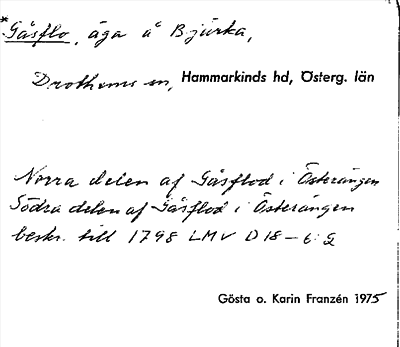 *Gåsflo, äga å Bjurka,
Drothems sn, Hammarkinds hd, Österg. län
Norra delen af Gåsflod i Österängen
Södra delen af Gåsflod i Österängen
beskr. till 1798 LMV D 18-6:2
Gösta o. Karin Franzén 1975